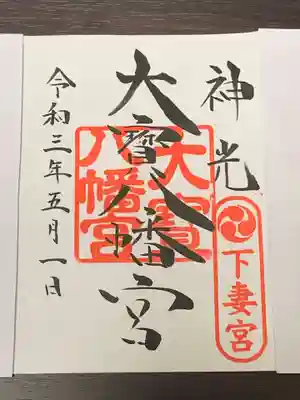 神光
下妻宮
大寳八幡宮
大寳八幡宮
令和三年五月一日